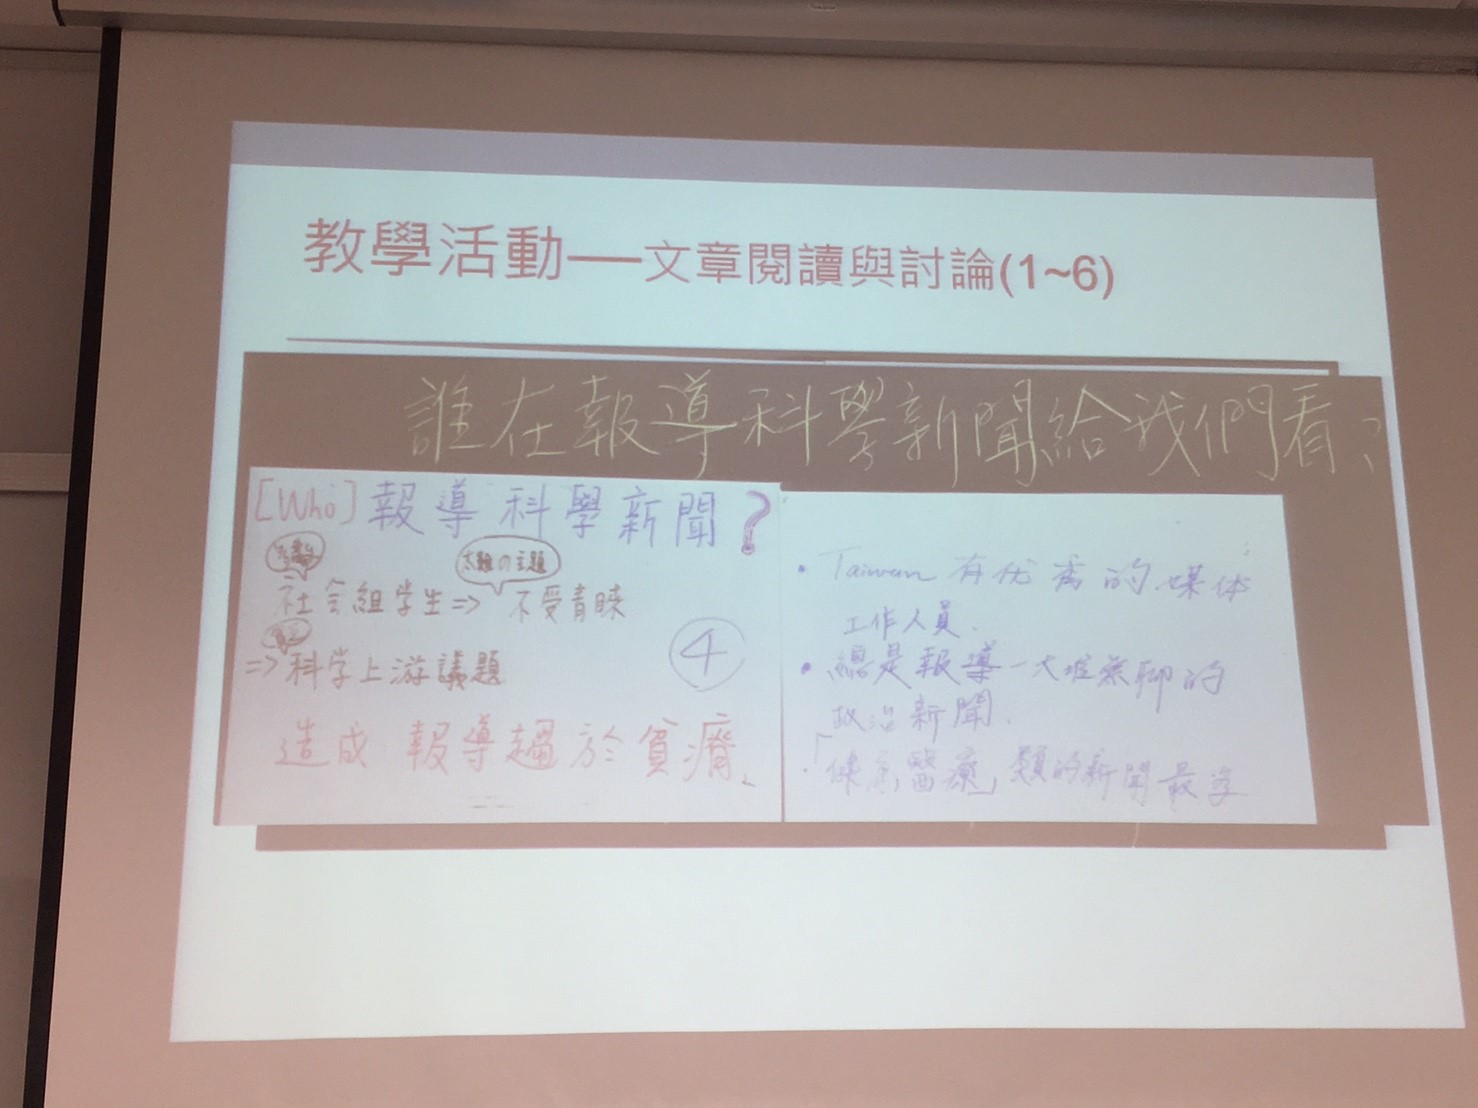 教學活動——文章閱讀與討論(1~6)
誰在報導科學新聞給我們看?
[Who]報導科學新聞?
太難の主題
社会組学生⇒不受青睞
⇒科学上游議題
④
造成 報導趨於貧瘠
• Taiwan 有优秀的媒体
工作人員.
• 總是報導一大堆無聊的
政治新聞.
•「健康醫療」類的新聞最多